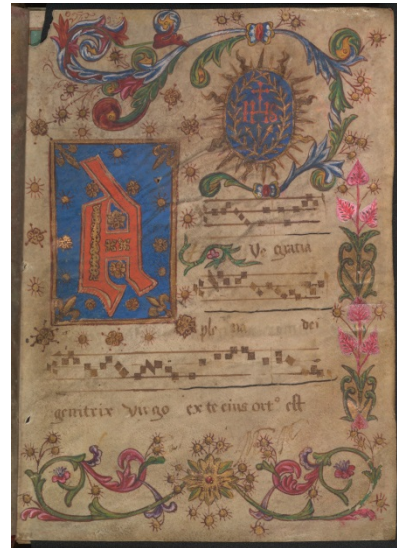 IHS
A
Ve gratia
ple na dei
genitrix virgo ex te eius ort⁹ est